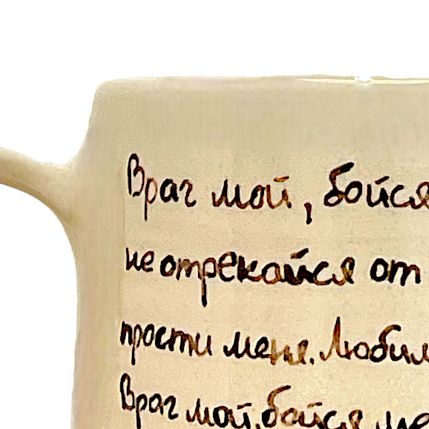 Враг мой, бойся
не отрекайся от
прости меня. Любил
Враг мой, бойся ме